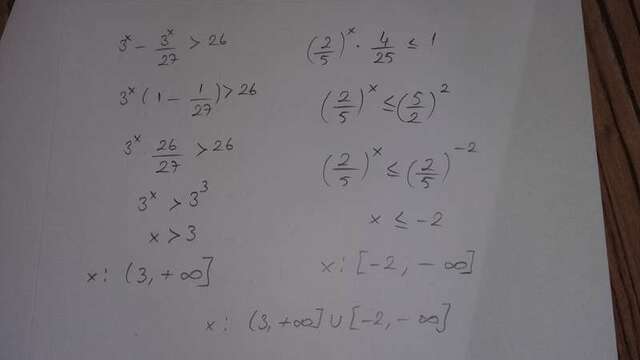 3^x - 3^x/27 > 26
3^x (1 - 1/27) > 26
3^x 26/27 > 26
3^x > 3^3
x > 3
x: (3, +∞]
(2/5)^x · 4/25 ≤ 1
(2/5)^x ≤ (5/2)^2
(2/5)^x ≤ (2/5)^-2
x ≤ -2
x: [-2, -∞]
x: (3, +∞] ∪ [-2, -∞]